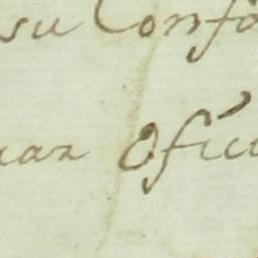 su Confo
uar Ofici